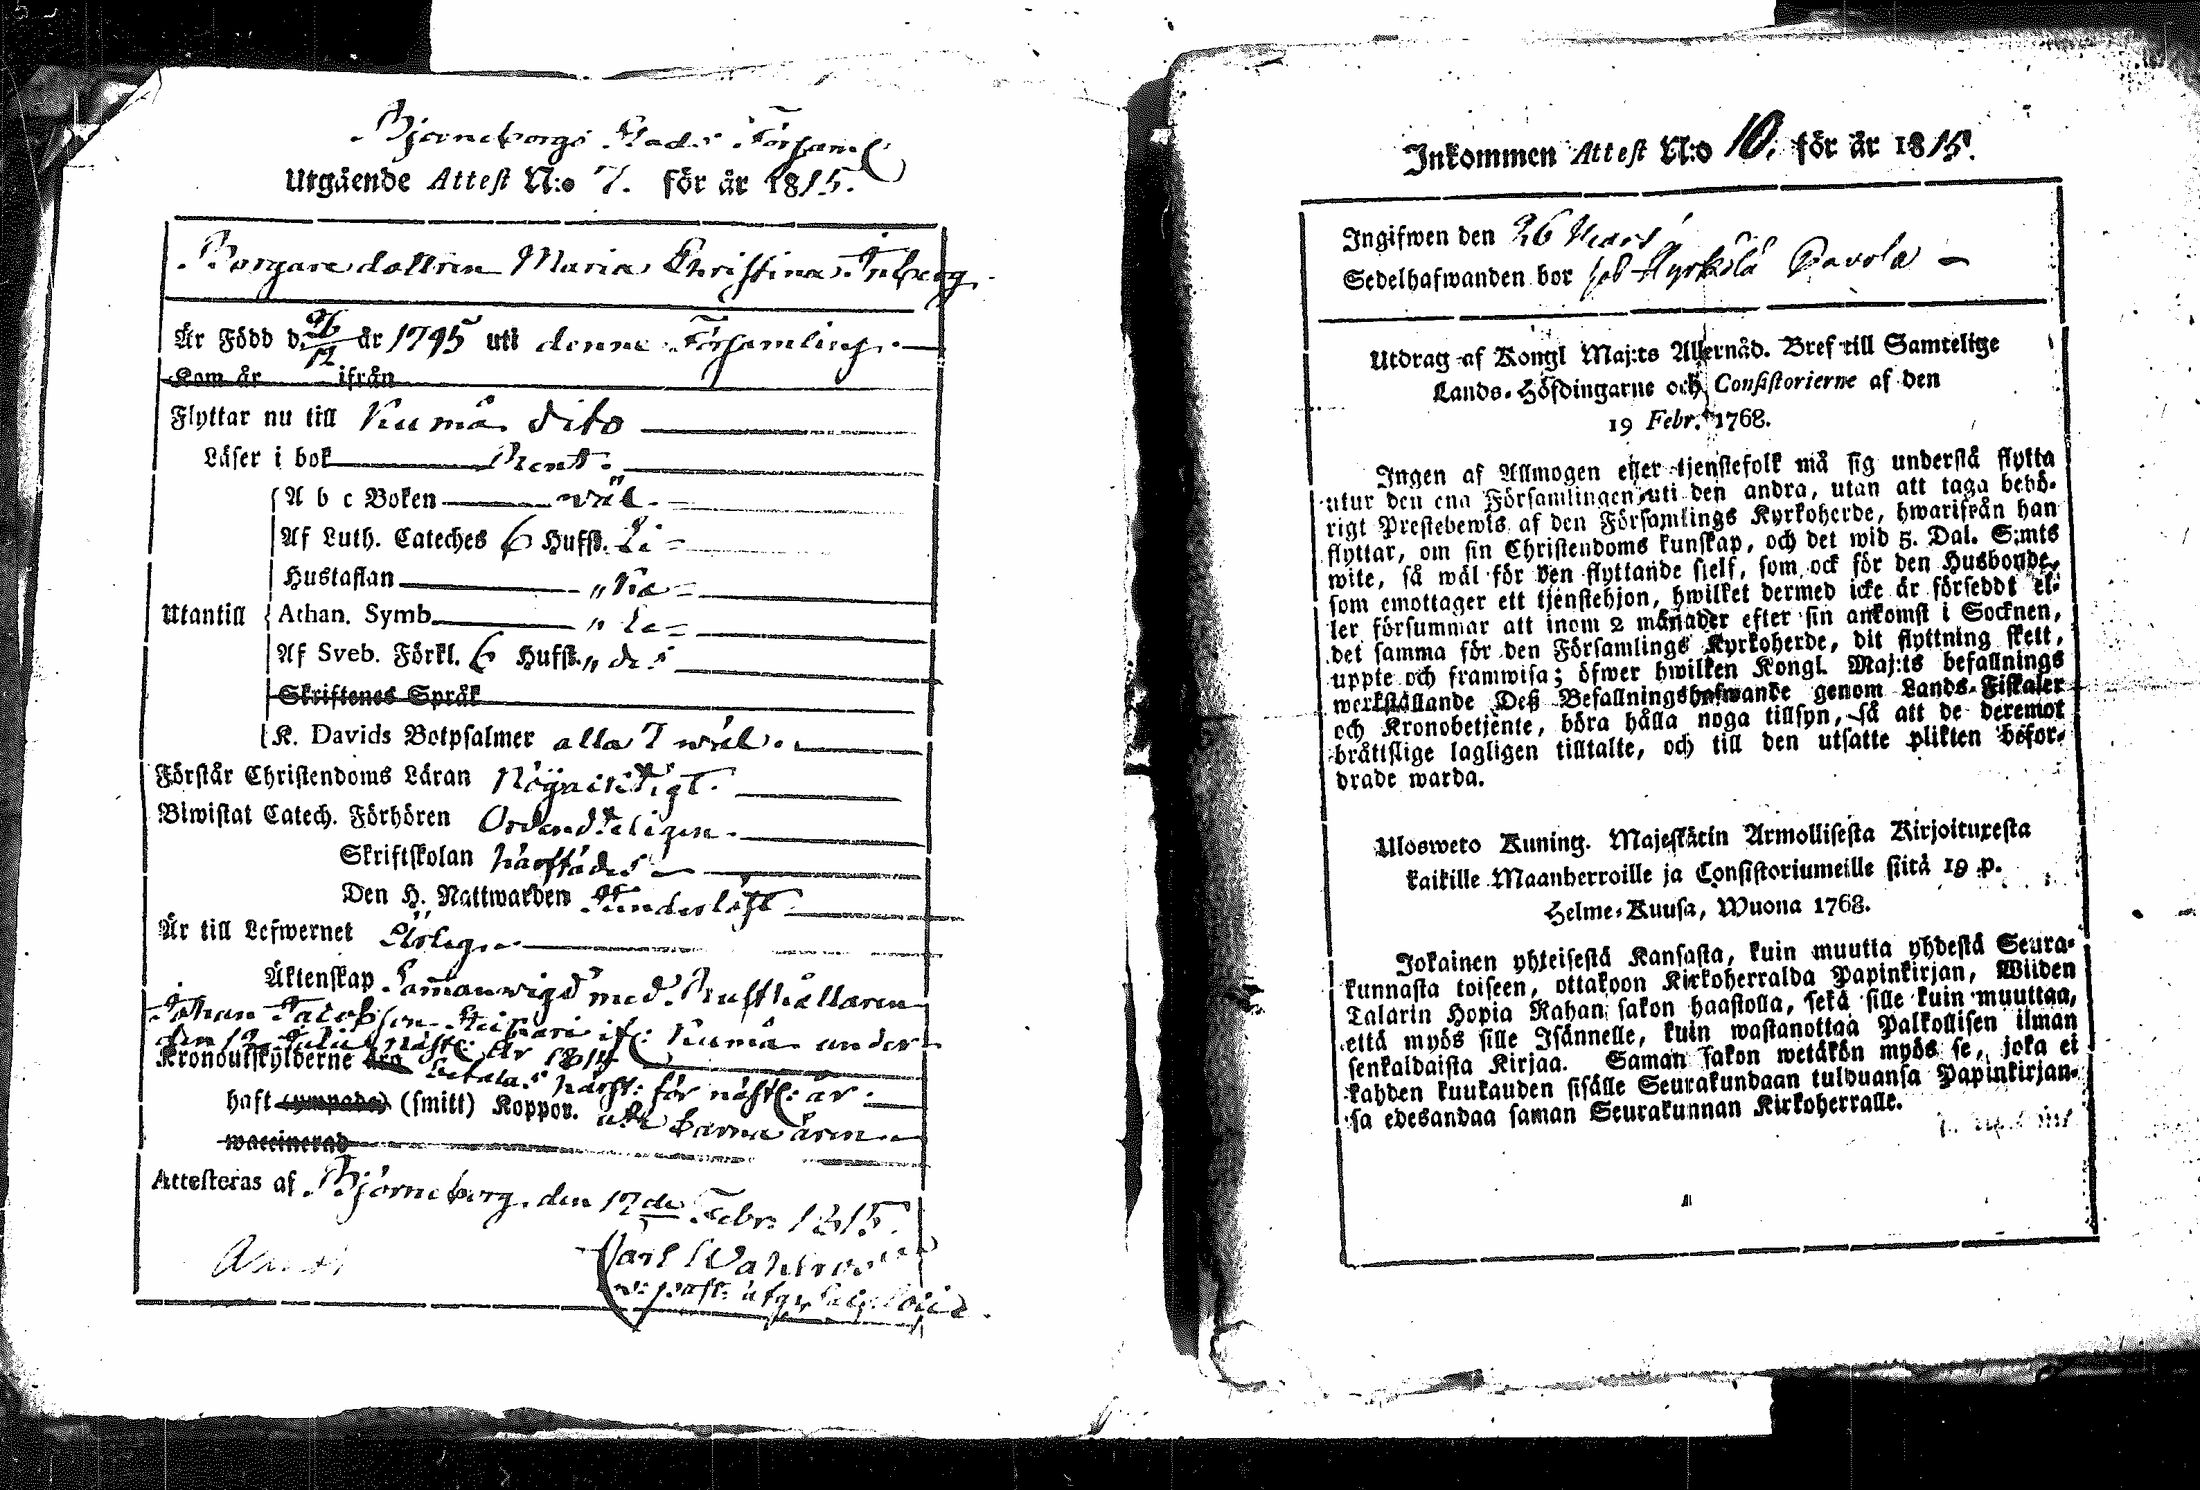 Björneborgs Stads Församl
Utgående Attest N:o 7. för år 1815.
Borgaredottren Maria Christina Inberg
Är Född d. /12 år 1795 uti denne Församling.
Kom år ifrån
Flyttar nu till Kumå dito
Läser i bok Rent.
A b c Boken wäl.
Af Luth. Cateches 6 Hufst.
Hustaflan
Utantill
Athan. Symb.
Af Sveb. Förkl. 6 Hufst.
Skriftenes Språk
K. Davids Botpsalmer alla 7 wäl.
Förstår Christendoms Läran Nögaktigt.
Biwistat Catech. Förhören Ordenteligen.
Skriftskolan härstädes
Den H. Nattwarden
Är till Lefwernet Ärlig.
Äktenskap Sammanwigd med Rusthållaren
Johan Jacobsson ifr: Kumå under
den 12 Julii näst: år 1814
Kronoutskylderne äro betalas härst: för nästl: år.
haft (ympade) (smitt) Koppor. uti barna åren.
waccinerad
Attesteras af Björneborg, den 17de Febr. 1815.
Carl
Inkommen Attest N:o 10. för år 1815.
Ingifwen den 26 Mars
Sedelhafwanden bor Pavola
Utdrag af Kongl Maj:ts Allernåd. Bref till Samtelige
Lands-Höfdingarne och Consistorierne af den
19 Febr. 1768.
Ingen af Allmogen eller tjenstefolk må sig understå flytta
utur den ena Församlingen uti den andra, utan att taga behö-
rigt Prestebewis af den Församlings Kyrkoherde, hwarifrån han
flyttar, om sin Christendoms kunskap, och det wid 5. Dal. S:mts
wite, så wäl för den flyttande sjelf, som ock för den Husbonde,
som emottager ett tjenstehjon, hwilket dermed icke är förseddt el-
ler försummar att inom 2 månader efter sin ankomst i Socknen,
det samma för den Församlings Kyrkoherde, dit flyttning skett,
uppte och framwisa; öfwer hwilken Kongl. Maj:ts befallnings
werkställande Deß Befallningshafwande genom Lands-Fiskaler
och Kronobetjente, böra hålla noga tillsyn, så att de deremot
bråttslige lagligen tilltalte, och till den utsatte plikten befor-
drade warda.
Ulosweto Kuning. Majestätin Armollisesta Kirjoituxesta
kaikille Maanherroille ja Consistoriumeille siitä 19 p.
Helme-Kuusa, Wuona 1768.
Jokainen yhteisestä Kansasta, kuin muutta yhdestä Seura-
kunnasta toiseen, ottakoon Kirkoherralda Papinkirjan, Wiiden
Talarin Hopia Rahan sakon haastolla, sekä sille kuin muuttaa,
että myös sille Isännelle, kuin wastanottaa Palkollisen ilman
senkaldaista Kirjaa. Saman sakon wetäkön myös se, joka ei
kahden kuukauden sisälle Seurakundaan tulduansa Papinkirjan-
sa edesandaa saman Seurakunnan Kirkoherralle.